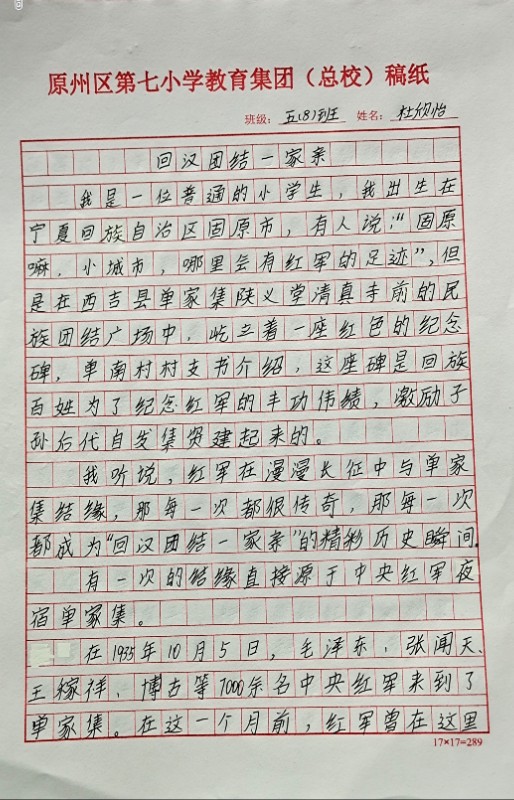 原州区第七小学教育集团（总校）稿纸
班级：五(8)班 姓名：杜欣怡
回汉团结一家亲
我是一位普通的小学生，我出生在
宁夏回族自治区固原市，有人说：“固原
嘛，小城市，哪里会有红军的足迹”，但
是在西吉县单家集陕义堂清真寺前的民
族团结广场中，屹立着一座红色的纪念
碑，单南村村支书介绍，这座碑是回族
百姓为了纪念红军的丰功伟绩，激励子
孙后代自发集资建起来的。
我听说，红军在漫漫长征中与单家
集结缘，那每一次都很传奇，那每一次
都成为“回汉团结一家亲”的精彩历史瞬间。
有一次的结缘直接源于中央红军夜
宿单家集。
在1935年10月5日，毛泽东、张闻天、
王稼祥、博古等7000余名中央红军来到了
单家集。在这一个月前，红军曾在这里
17×17=289